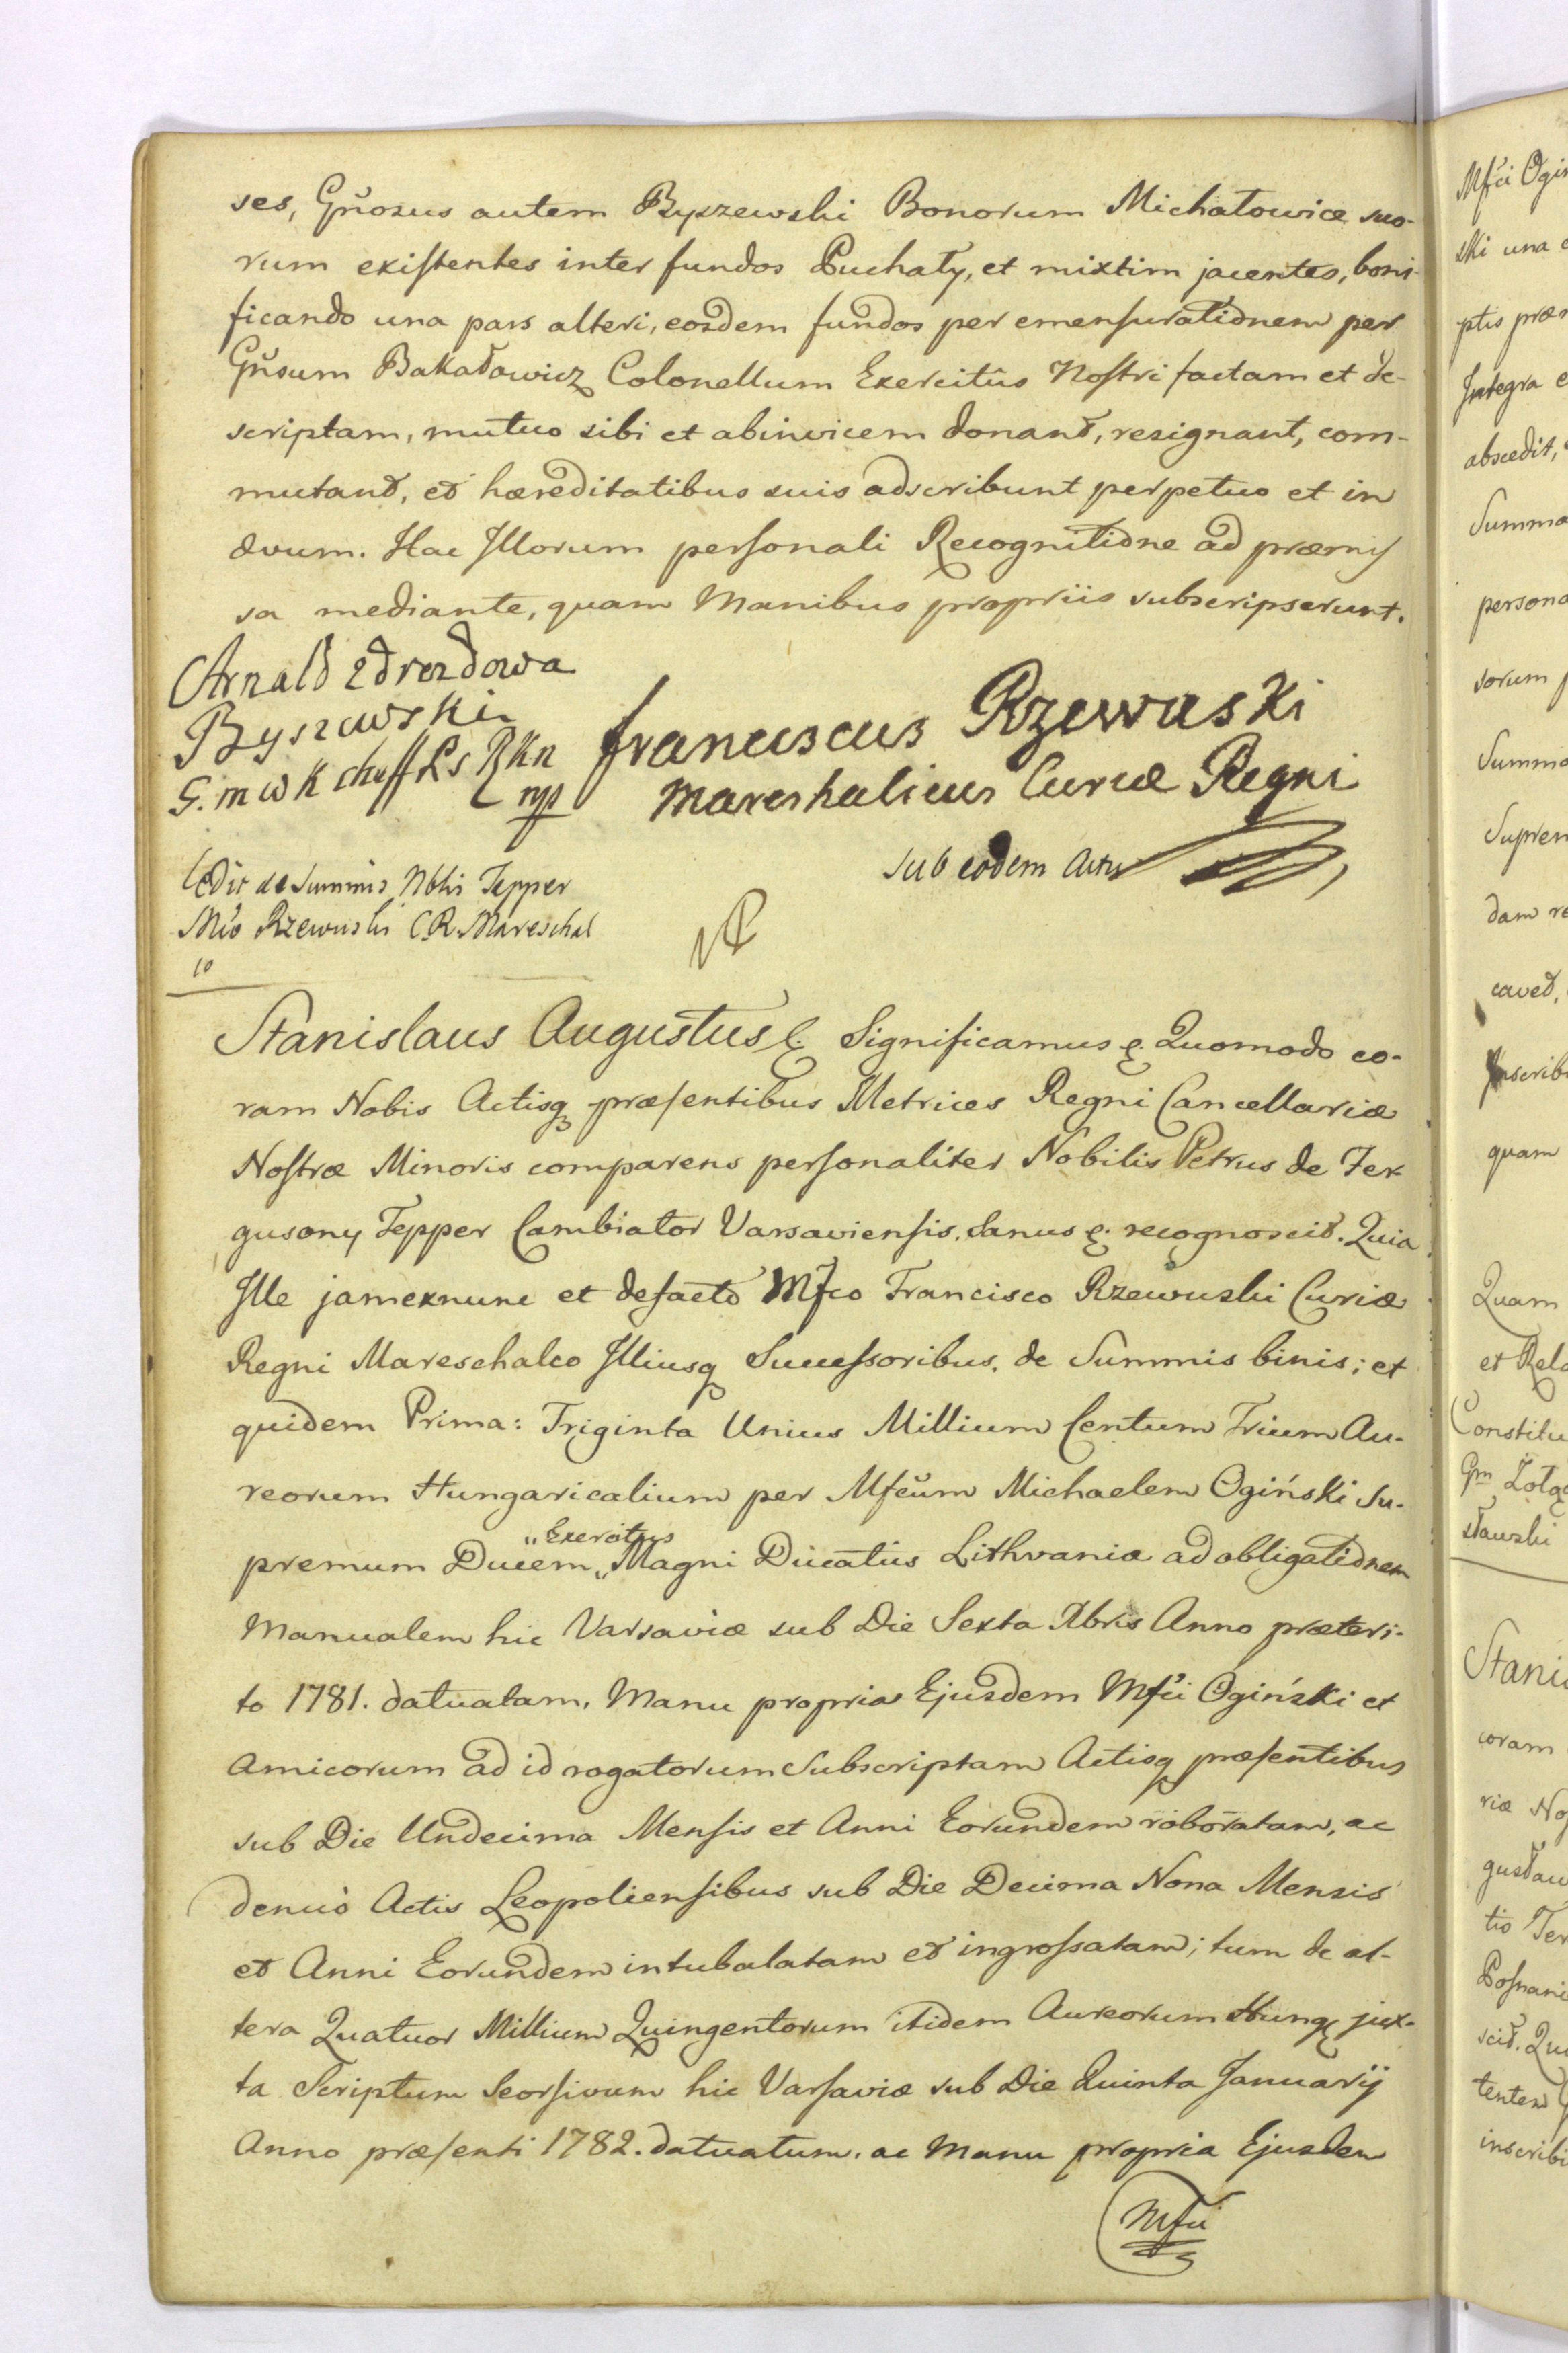 ses, Gnosus autem Byszewski Bonorum Michałowice suo-
rum existentes inter fundos Puchały, et mixtim jacentes, boni-
ficando una pars alteri, eosdem fundos per emensurationem per
Gnsum Bakałowicz Colonellum Exercitûs Nostri factam et de-
scriptam, mutuo sibi et abinvicem donant, resignant, com-
mutant, et hæreditatibus suis adscribunt perpetuo et in
ævum. Hac Illorum personali Recognitione ad præmis
sa mediante, quam Manibus propriis subscripserunt.
Arnald zdrozdowa
Byszewski
G. m w K cheff
mp
Franciscus Rzewuski
Mareshalicus Curiæ Regni
sub eodem Actu
Cedit de Summis Nblis Tepper
Mco Rzewuski C.R. Mareschal
10
Stanislaus Augustus &. Significamus &. Quomodo co-
ram Nobis Actisq præsentibus Metrices Regni Cancellariæ
Nostræ Minoris comparens personaliter Nobilis Petrus de Fer-
gusony Tepper Cambiator Varsaviensis. Sanus &. recognoscit. Quia
Ille jamexnunc et defacto Mfco Francisco Rzewuski Curiæ
Regni Mareschalco Illiusq Successoribus, de Summis binis; et
quidem Prima: Triginta Unius Millium Centum Trium Au-
reorum Hungaricalium per Mfcum Michaelem Ogiński Su-
"Exercitus
premum Ducem " Magni Ducatûs Lithvaniæ ad obligationem
Manualem hic Varsaviæ sub Die Sexta Xbris Anno præteri-
to 1781. datuatam, Manu propria Ejusdem Mfci Ogiński et
Amicorum ad id rogatorum Subscriptam Actisq præsentibus
sub Die Undecima Mensis et Anni Eorundem roboratam, ac
denuò Actis Leopoliensibus sub Die Decima Nona Mensis
et Anni Eorundem intubalatam et ingrossatam; tum de al-
tera Quatuor Millium Quingentorum itidem Aureorum Hung jux-
ta Scriptum Seorsivum hic Varsaviæ sub Die Quinta Januarij
Anno præsenti 1782. datuatum, ac Manu propria Ejusdem
Mfci
Mfci Ogiń
ski una
ptis præ
Integra
abscedit,
Summa
persona
sorum
Summa
Suprem
dam re
cavet,
Inscrib
quam
Quam
et Rela
Constitu
Gm Zołą
sławski
Stani
coram
riæ No
gustaw
tio Ter
Posnani
scit. Qu
tenten
inscribi